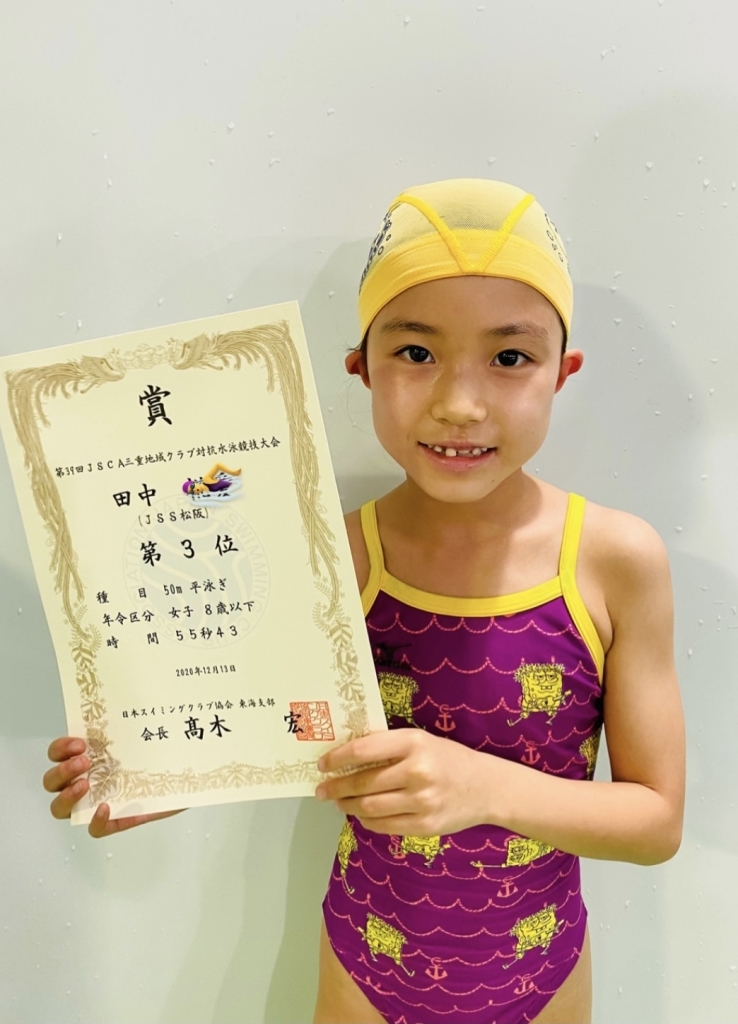 賞
第39回JSCA三重地域クラブ対抗水泳競技大会
田中
(JSS松阪)
第 3 位
種 目 50m 平泳ぎ
年令区分 女子 8歳以下
時 間 55秒43
2020年12月13日
日本スイミングクラブ協会 東海支部
会長 髙木 宏